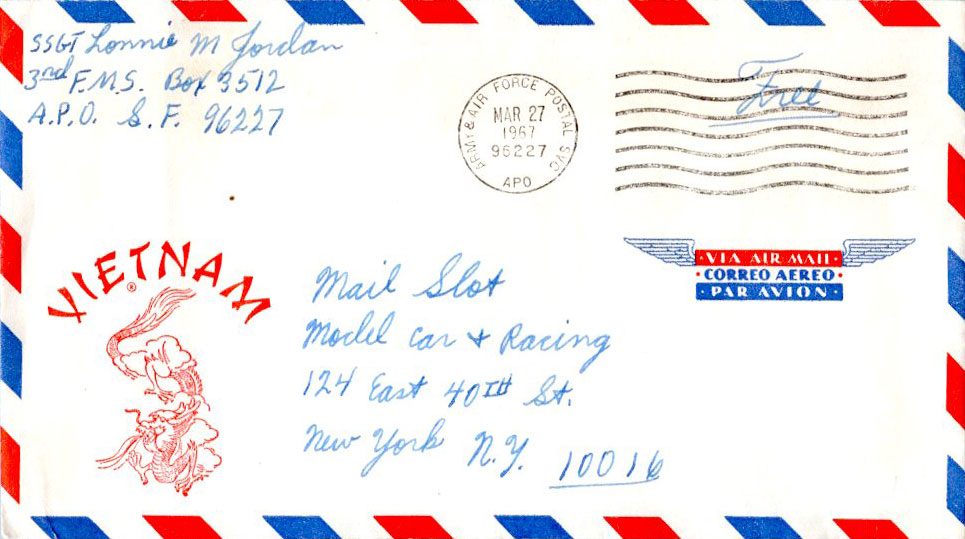 SSGT Lonnie M Jordan
3rd F.M.S. Box 3512
A.P.O. S.F. 96227
ARMY & AIR FORCE POSTAL SVC
MAR 27
1967
96227
APO
Free
VIETNAM
®
VIA AIR MAIL
CORREO AEREO
PAR AVION
Mail Slot
Model Car & Racing
124 East 40TH St.
New York N.Y. 10016